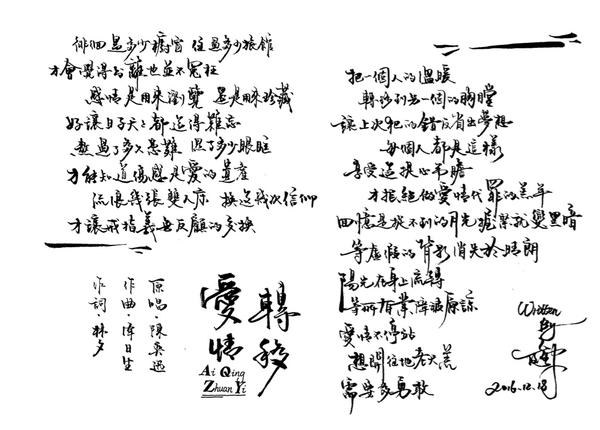 徘徊過多少櫥窗 住過多少旅館
才會覺得分離也並不冤枉
感情是用來瀏覽 還是用來珍藏
好讓日子天天都過得難忘
熬過了多久患難 濕了多少眼眶
才能知道傷感是愛的遺產
流浪幾張雙人床 換過幾次信仰
才讓戒指義無反顧的交換
把一個人的溫暖
轉移到另一個的胸膛
讓上次犯的錯反省出夢想
每個人都是這樣
享受過提心吊膽
才拒絕做愛情代罪的羔羊
回憶是捉不到的月光握緊就變黑暗
等虛假的背影消失於晴朗
陽光在身上流轉
等所有業障被原諒
愛情不停站
想開往地老天荒
需要多勇敢
轉移
愛情
Ai Qing
Zhuan Yi
原唱:陳奕迅
作曲:澤日生
作詞:林夕
Written
2016.12.18